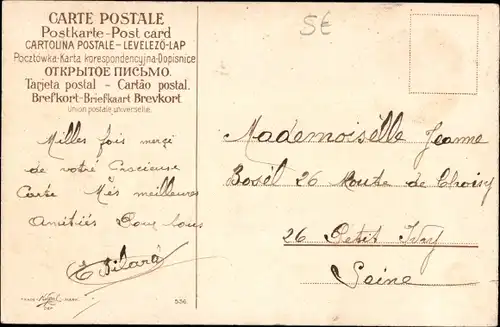 CARTE POSTALE
Postkarte-Post card
CARTOLINA POSTALE-LEVELEZÖ-LAP
Pocztówka-Karta korespondencyjna-Dopisnice
ОТКРЫТОЕ ПИСЬМО.
Tarjeta postal - Cartão postal.
Brefkort-Briefkaart Brevkort
Union postale universelle.
5E
Milles fois merçi
de votre Gracieuse
Carte Mes meilleures
Amitiés Pour tous
Mademoiselle Jeanne
Bosel 26 Route de Choisy
26 Petit Ivry
Seine
536